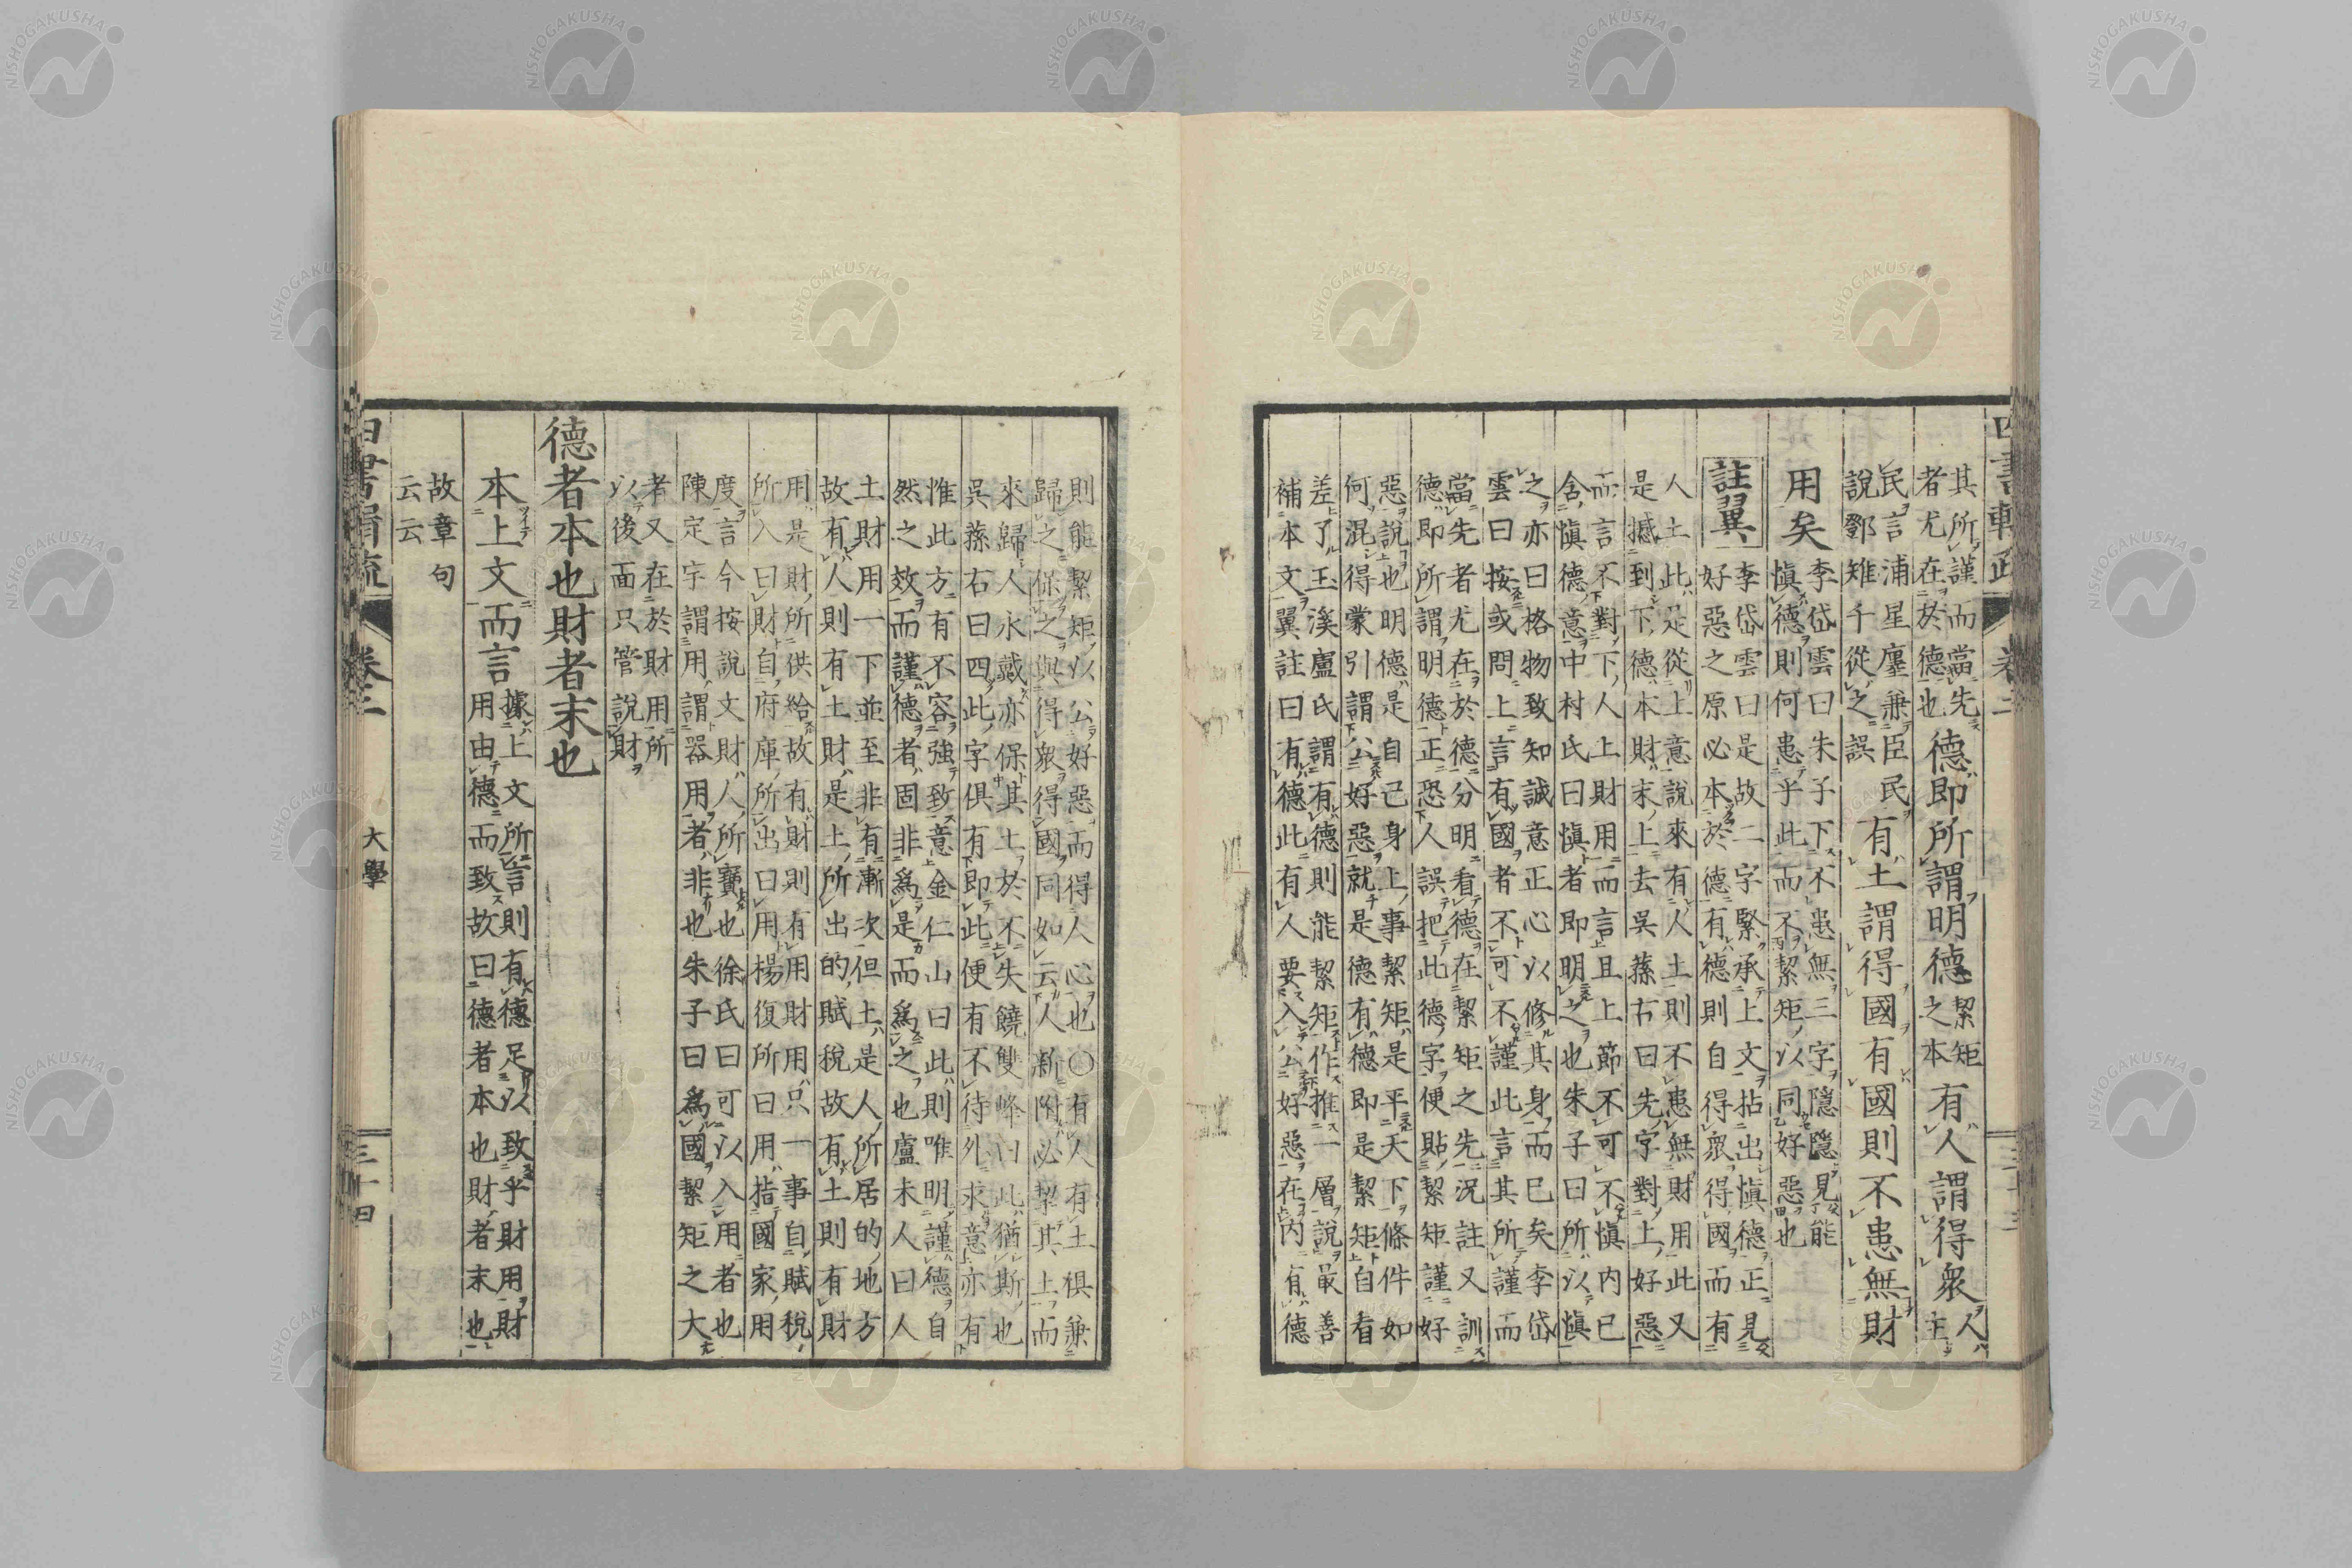 其所謹而當先
者尤在於德也
德即所謂明德
絜矩
之本
有人謂得衆
人
土
民言浦星塵兼臣民
說鄧雉千從之誤
有土謂得國有國則不患無財
用矣
李岱雲曰朱子下不患無三字隱隱見能
愼德則何患乎此而不絜矩以同好惡也
註翼
李岱雲曰是故二字緊承上文拈出愼德正見
好惡之原必本於德有德則自得衆得國而有
人土此是從上意說來有人土則不患無財用此又
是撼到下德本財末上去吳蓀右曰先字對上好惡
而言不對下人上財用而言且上節不可不愼内已
含愼德意中村氏曰愼者即明之也朱子曰所以愼
之亦曰格物致知誠意正心以修其身而已矣李岱
雲曰按或問上言有國者不可不謹此言其所謹而
當先者尤在於德分明看德在絜矩之先况註又訓
德即所謂明德正恐人誤把此德字便貼絜矩謹好
惡說也明明德是自己身上事絜矩是平天下條件如
何混得蒙引謂公好惡就是德有德即是絜矩自看
差了玉溪盧氏謂有德則能絜矩作推一層說最善
補本文翼註曰有德此有人要入公好惡在内有德
則能絜矩以公好惡而得人心也○有人有土俱兼
歸之保之與得衆得國同如云人新附必挈其上而
來歸人永戴亦保其土於不失饒雙峰曰此猶斯也
吳蓀右曰四此字俱有即此便有不待外求意亦有
惟此方有不容強致意金仁山曰此則唯明謹德自
然之效而謹德者固非爲是而爲之也盧未人曰人
土財用一下並至非有漸次但土是人所居的地方
故有人則有土財是上所出的賦稅故有土則有財
用是財所供給故有財則有用財用只一事自賦稅
所入曰財自府庫所出曰用楊復所曰用指國家用
度言今按說文財人所寶也徐氏曰可以入用者也
陳定宇謂用謂器用者非也朱子曰爲國絜矩之大
者又在於財用所
以後面只管說財
德者本也財者末也
本上文而言
據上文所言則有德足以致乎財用財
用由德而致故曰德者本也財者末也
故章句
云云
大學
三十四